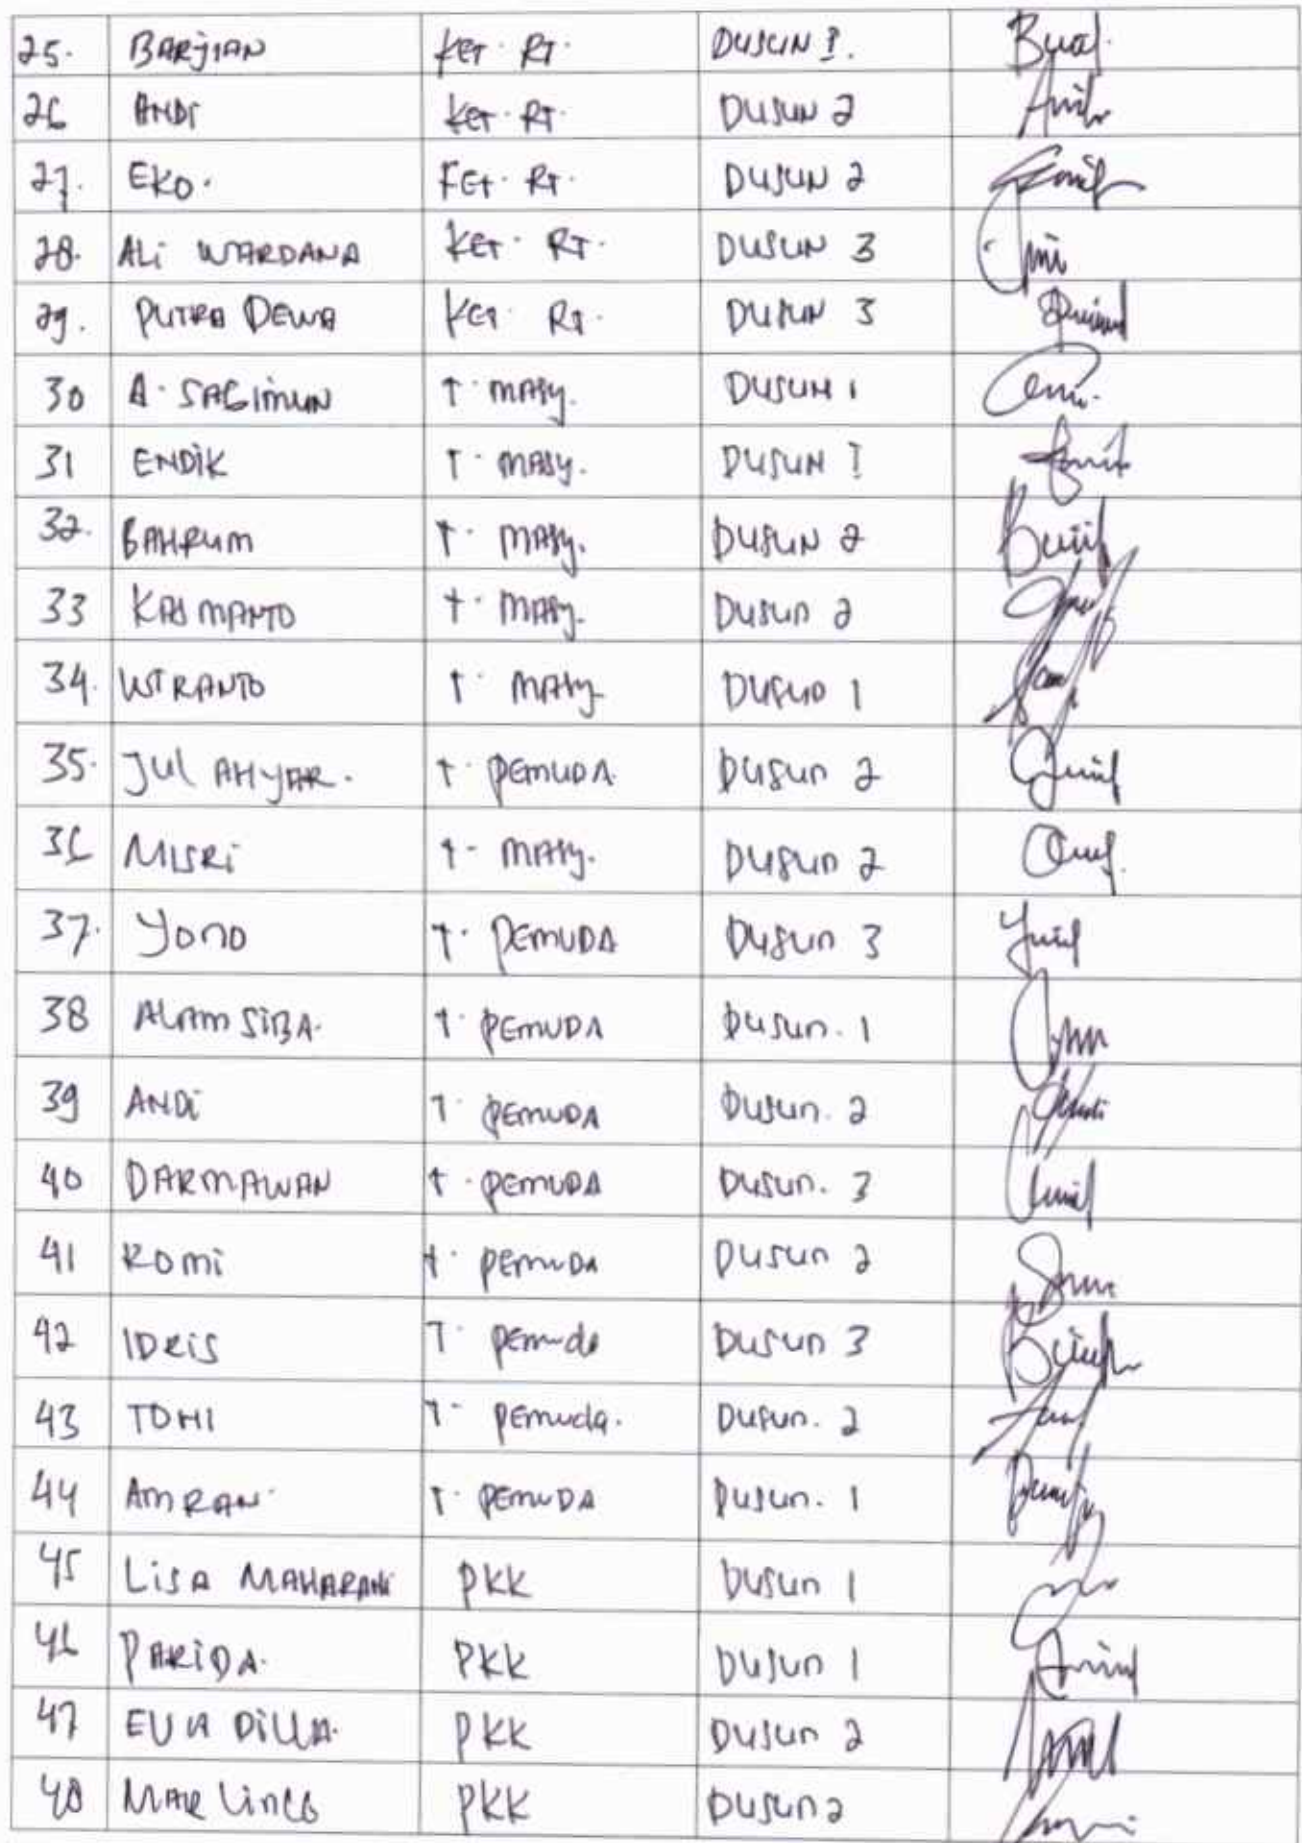 25. BARJIAN KET. RT. DUSUN I.
26 ANDI KET. RT. DUSUN 2
27. EKO. KET. RT. DUSUN 2
28. ALI WARDANA KET. RT. DUSUN 3
29. PUTRA DEWA KET. RT. DUSUN 3
30 A. SAGIMUN T. MASY. DUSUN 1
31 ENDIK T. MASY. DUSUN I
32. BAHRUM T. MASY. DUSUN 2
33 KASMANTO T. MASY. DUSUN 2
34. WIRANTO T. MASY DUSUN 1
35. JUL AHYAR. T. PEMUDA. DUSUN 2
36 MISRI T- MASY. DUSUN 2
37. YONO T. PEMUDA DUSUN 3
38 ALAMSIBA. T. PEMUDA DUSUN. 1
39 ANDI T. PEMUDA DUSUN. 2
40 DARMAWAN T. PEMUDA DUSUN. 3
41 ROMI T. PEMUDA DUSUN 2
42 IDRIS T. Pemuda DUSUN 3
43 TOHI T- Pemuda. DUSUN. 2
44 AMRAN. T. PEMUDA DUSUN. 1
45 LISA MAHARANI PKK DUSUN 1
46 PARIDA. PKK DUSUN 1
47 EVA DILLA. PKK DUSUN 2
48 PKK DUSUN 2